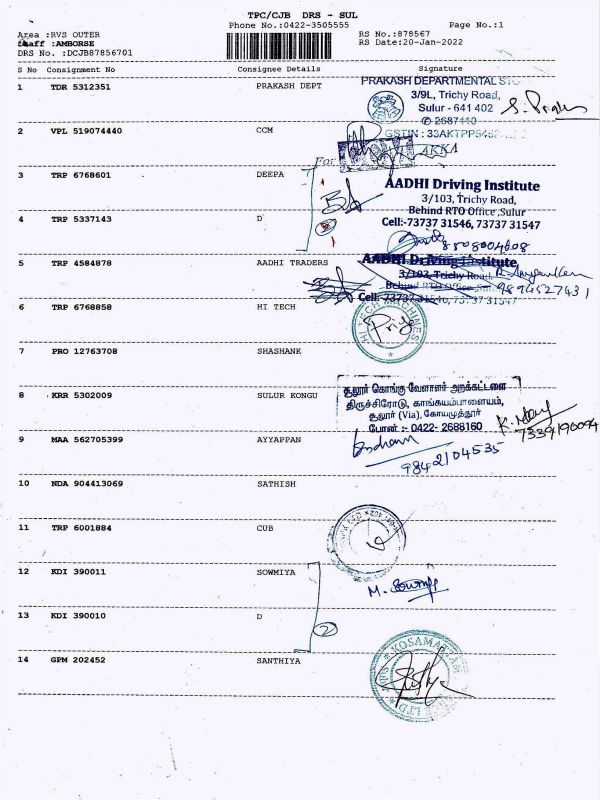 TPC/CJB DRS - SUL
Phone No.:0422-3505555 Page No.:1
Area :RVS OUTER RS No.:878567
Staff :AMBORSE RS Date:20-Jan-2022
DRS No. :DCJB87856701
S No Consignment No Consignee Details Signature
1 TDR 5312351 PRAKASH DEPT
PRAKASH DEPARTMENTAL
3/9L, Trichy Road,
Sulur - 641 402
2 VPL 519074440 CCM
GSTIN :
For
3 TRP 6768601 DEEPA
AADHI Driving Institute
3/103, Trichy Road,
Behind RTO Office ,Sulur
Cell:-73737 31546, 73737 31547
4 TRP 5337143 D
2
8508004808
5 TRP 4584878 AADHI TRADERS
AADHI Driving Institute,
3/103, Trichy Road,
Behind RTO Office
Cell: 73737 31546, 73737 31547
9894527431
6 TRP 6768858 HI TECH
HI TECH MACHINES
Priya
7 PRO 12763708 SHASHANK
8 KRR 5302009 SULUR KONGU
சூலூர் கொங்கு வேளாளர் அறக்கட்டளை
திருச்சிரோடு, காங்கயம்பாளையம்,
சூலூர் (Via), கோயமுத்தூர்
போன் :- 0422- 2688160
9 MAA 562705399 AYYAPPAN
9842104535
10 NDA 904413069 SATHISH
11 TRP 6001884 CUB
12 KDI 390011 SOWMIYA
13 KDI 390010 D
2
14 GPM 202452 SANTHIYA